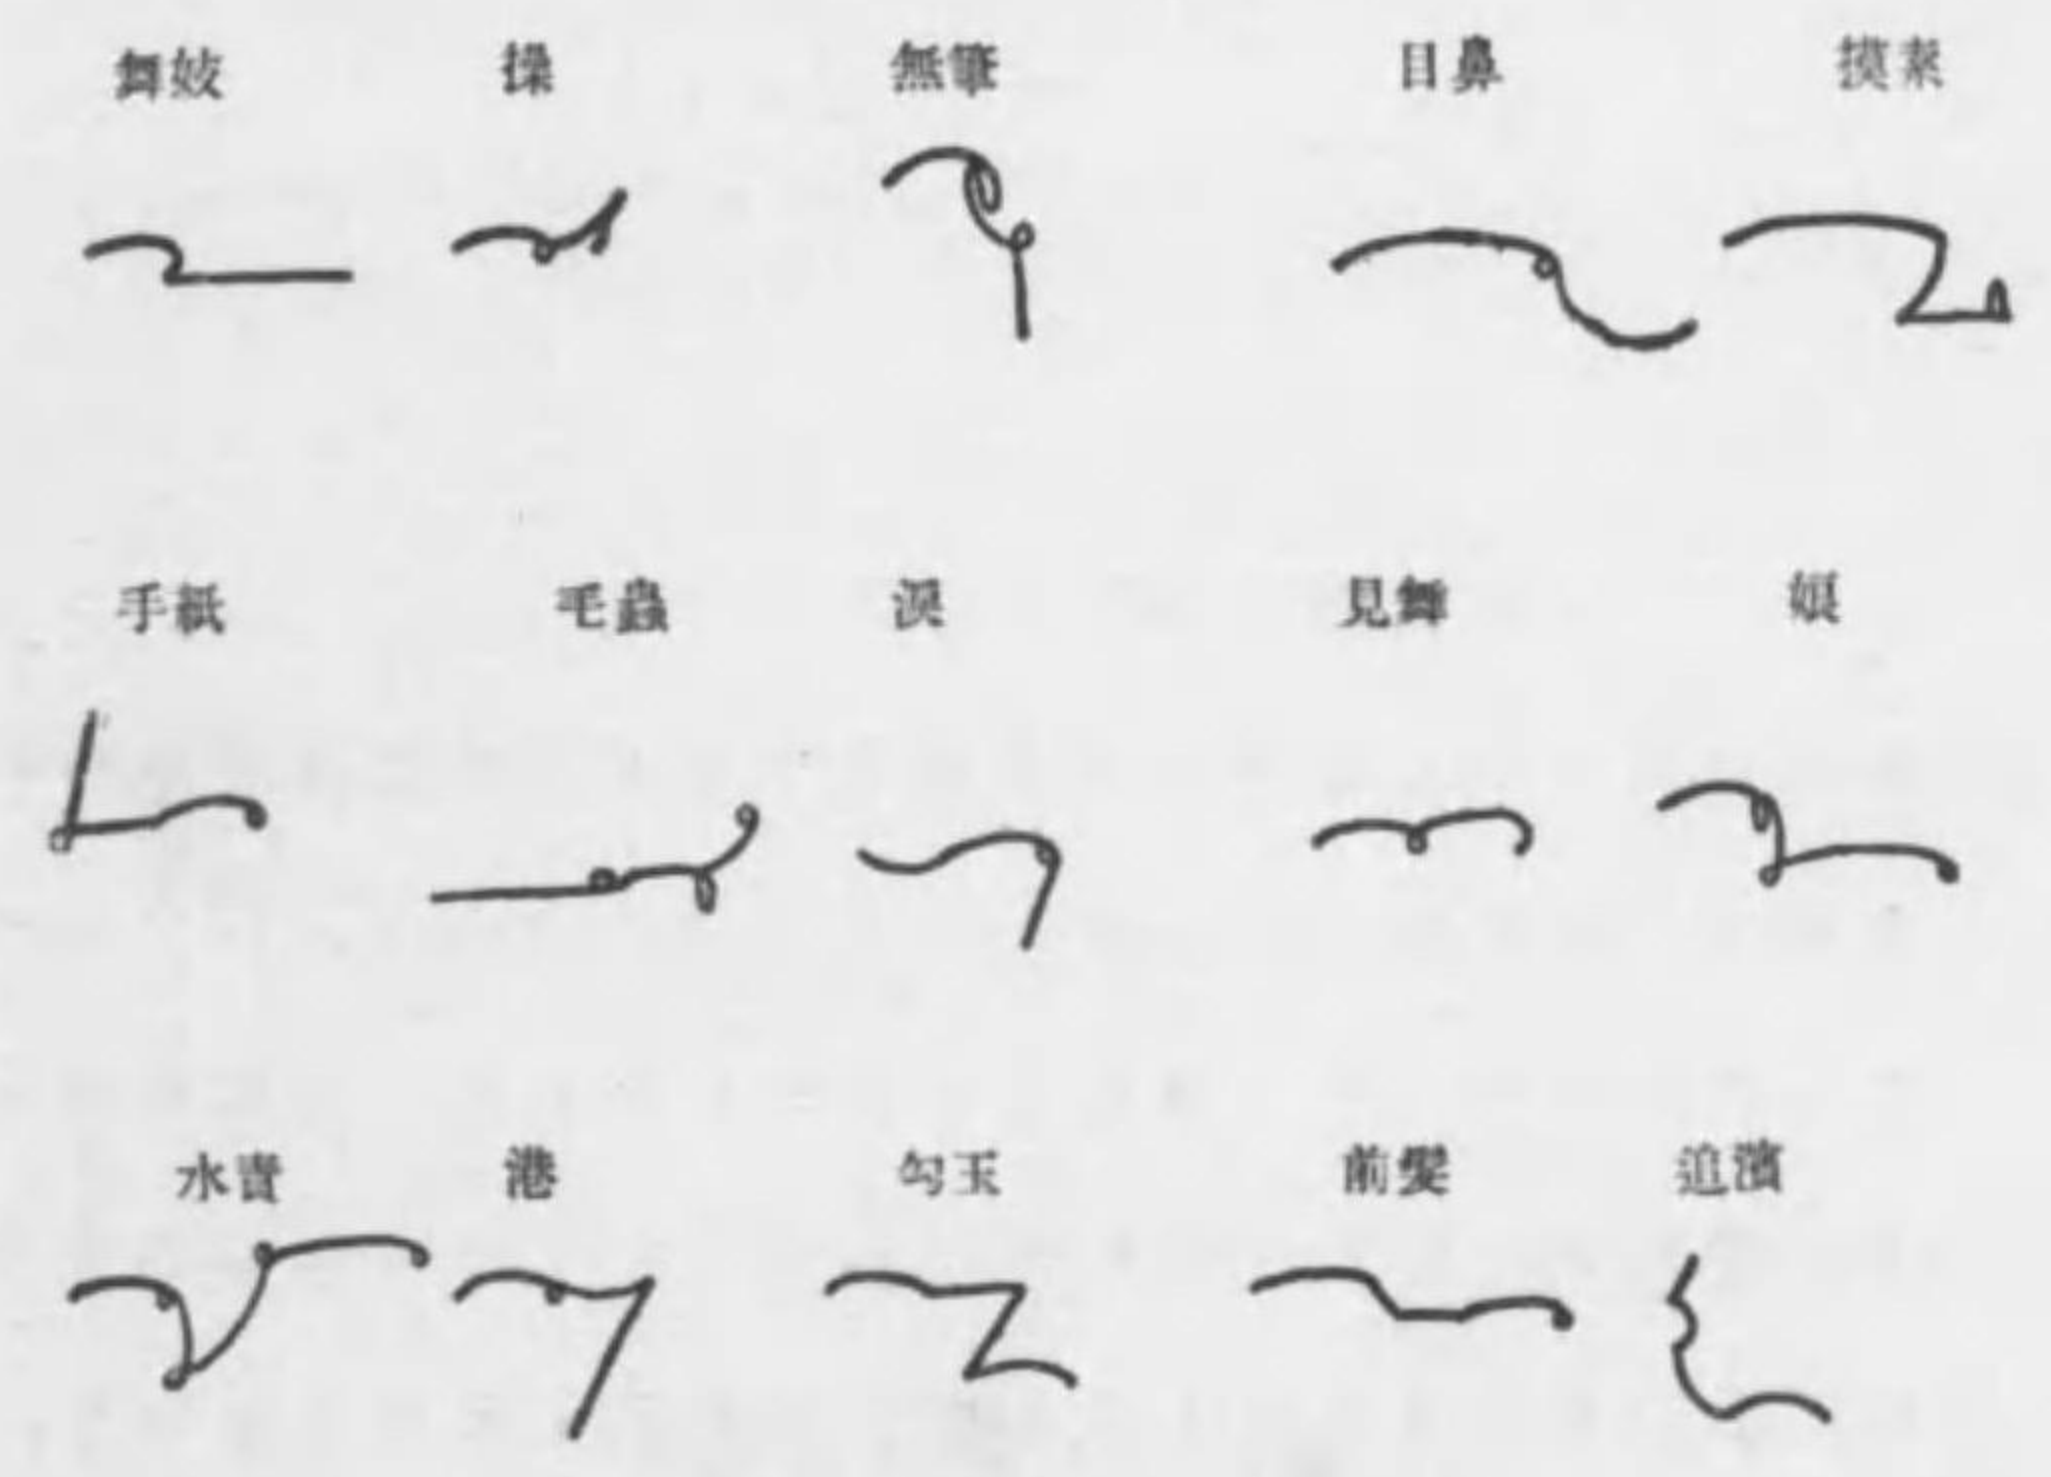 舞妓 操 無筆 目鼻 摸索
手紙 毛蟲 涙 見舞 娘
水責 港 勾玉 前髪 追濱